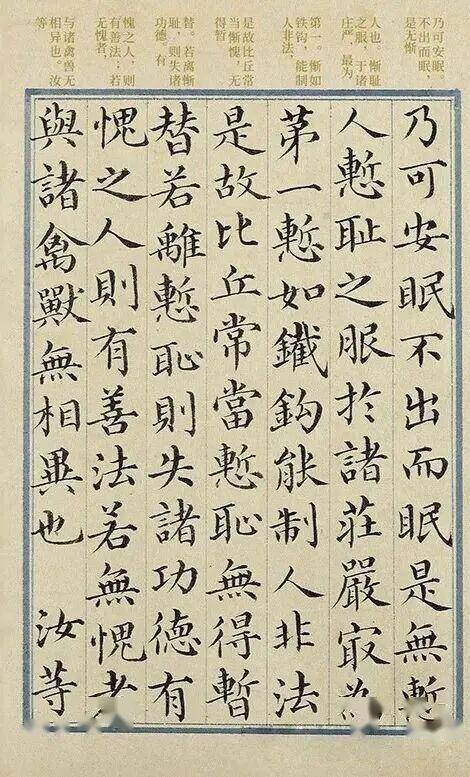 乃可安眠。
不出而眠，
是无惭
人也。惭耻
之服，于诸
庄严，最为
第一。惭如
铁钩，能制
人非法，
是故比丘常
当惭愧，无
得暂
替。若离惭
耻，则失诸
功德。有
愧之人，则
有善法；若
无愧者，
与诸禽兽无
相异也。汝
等
乃可安眠不出而眠是無慙
人慙耻之服扵諸莊嚴㝡為
苐一慙如鐵鈎能制人非法
是故比丘常當慙恥無得暫
替若離慙恥則失諸功德有
愧之人則有善法若無愧者
與諸禽獸無相異也 汝等